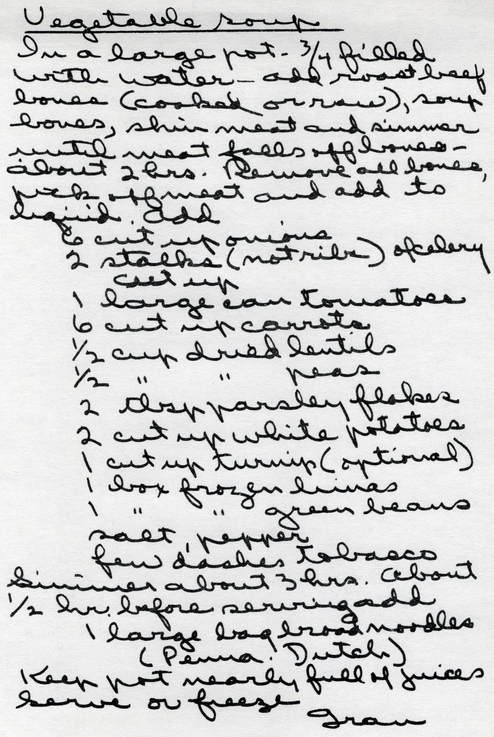 Vegetable soup
In a large pot - 3/4 filled
with water - add roast beef
bones (cooked or raw), soup
bones, shin meat and simmer
until meat falls off bones -
about 2 hrs. Remove all bones,
pick off meat and add to
liquid. Add
6 cut up onions
2 stalks (not ribs) of celery
cut up
1 large can tomatoes
6 cut up carrots
1/2 cup dried lentils
1/2 " " peas
2 tbsp parsley flakes
2 cut up white potatoes
1 cut up turnip (optional)
1 box frozen limas
1 " " green beans
salt, pepper
few dashes tobasco
Simmer about 3 hrs. About
1/2 hr. before serving add
1 large bag broad noodles
(Penna. Dutch)
Keep pot nearly full of juices
serve or freeze
Gran